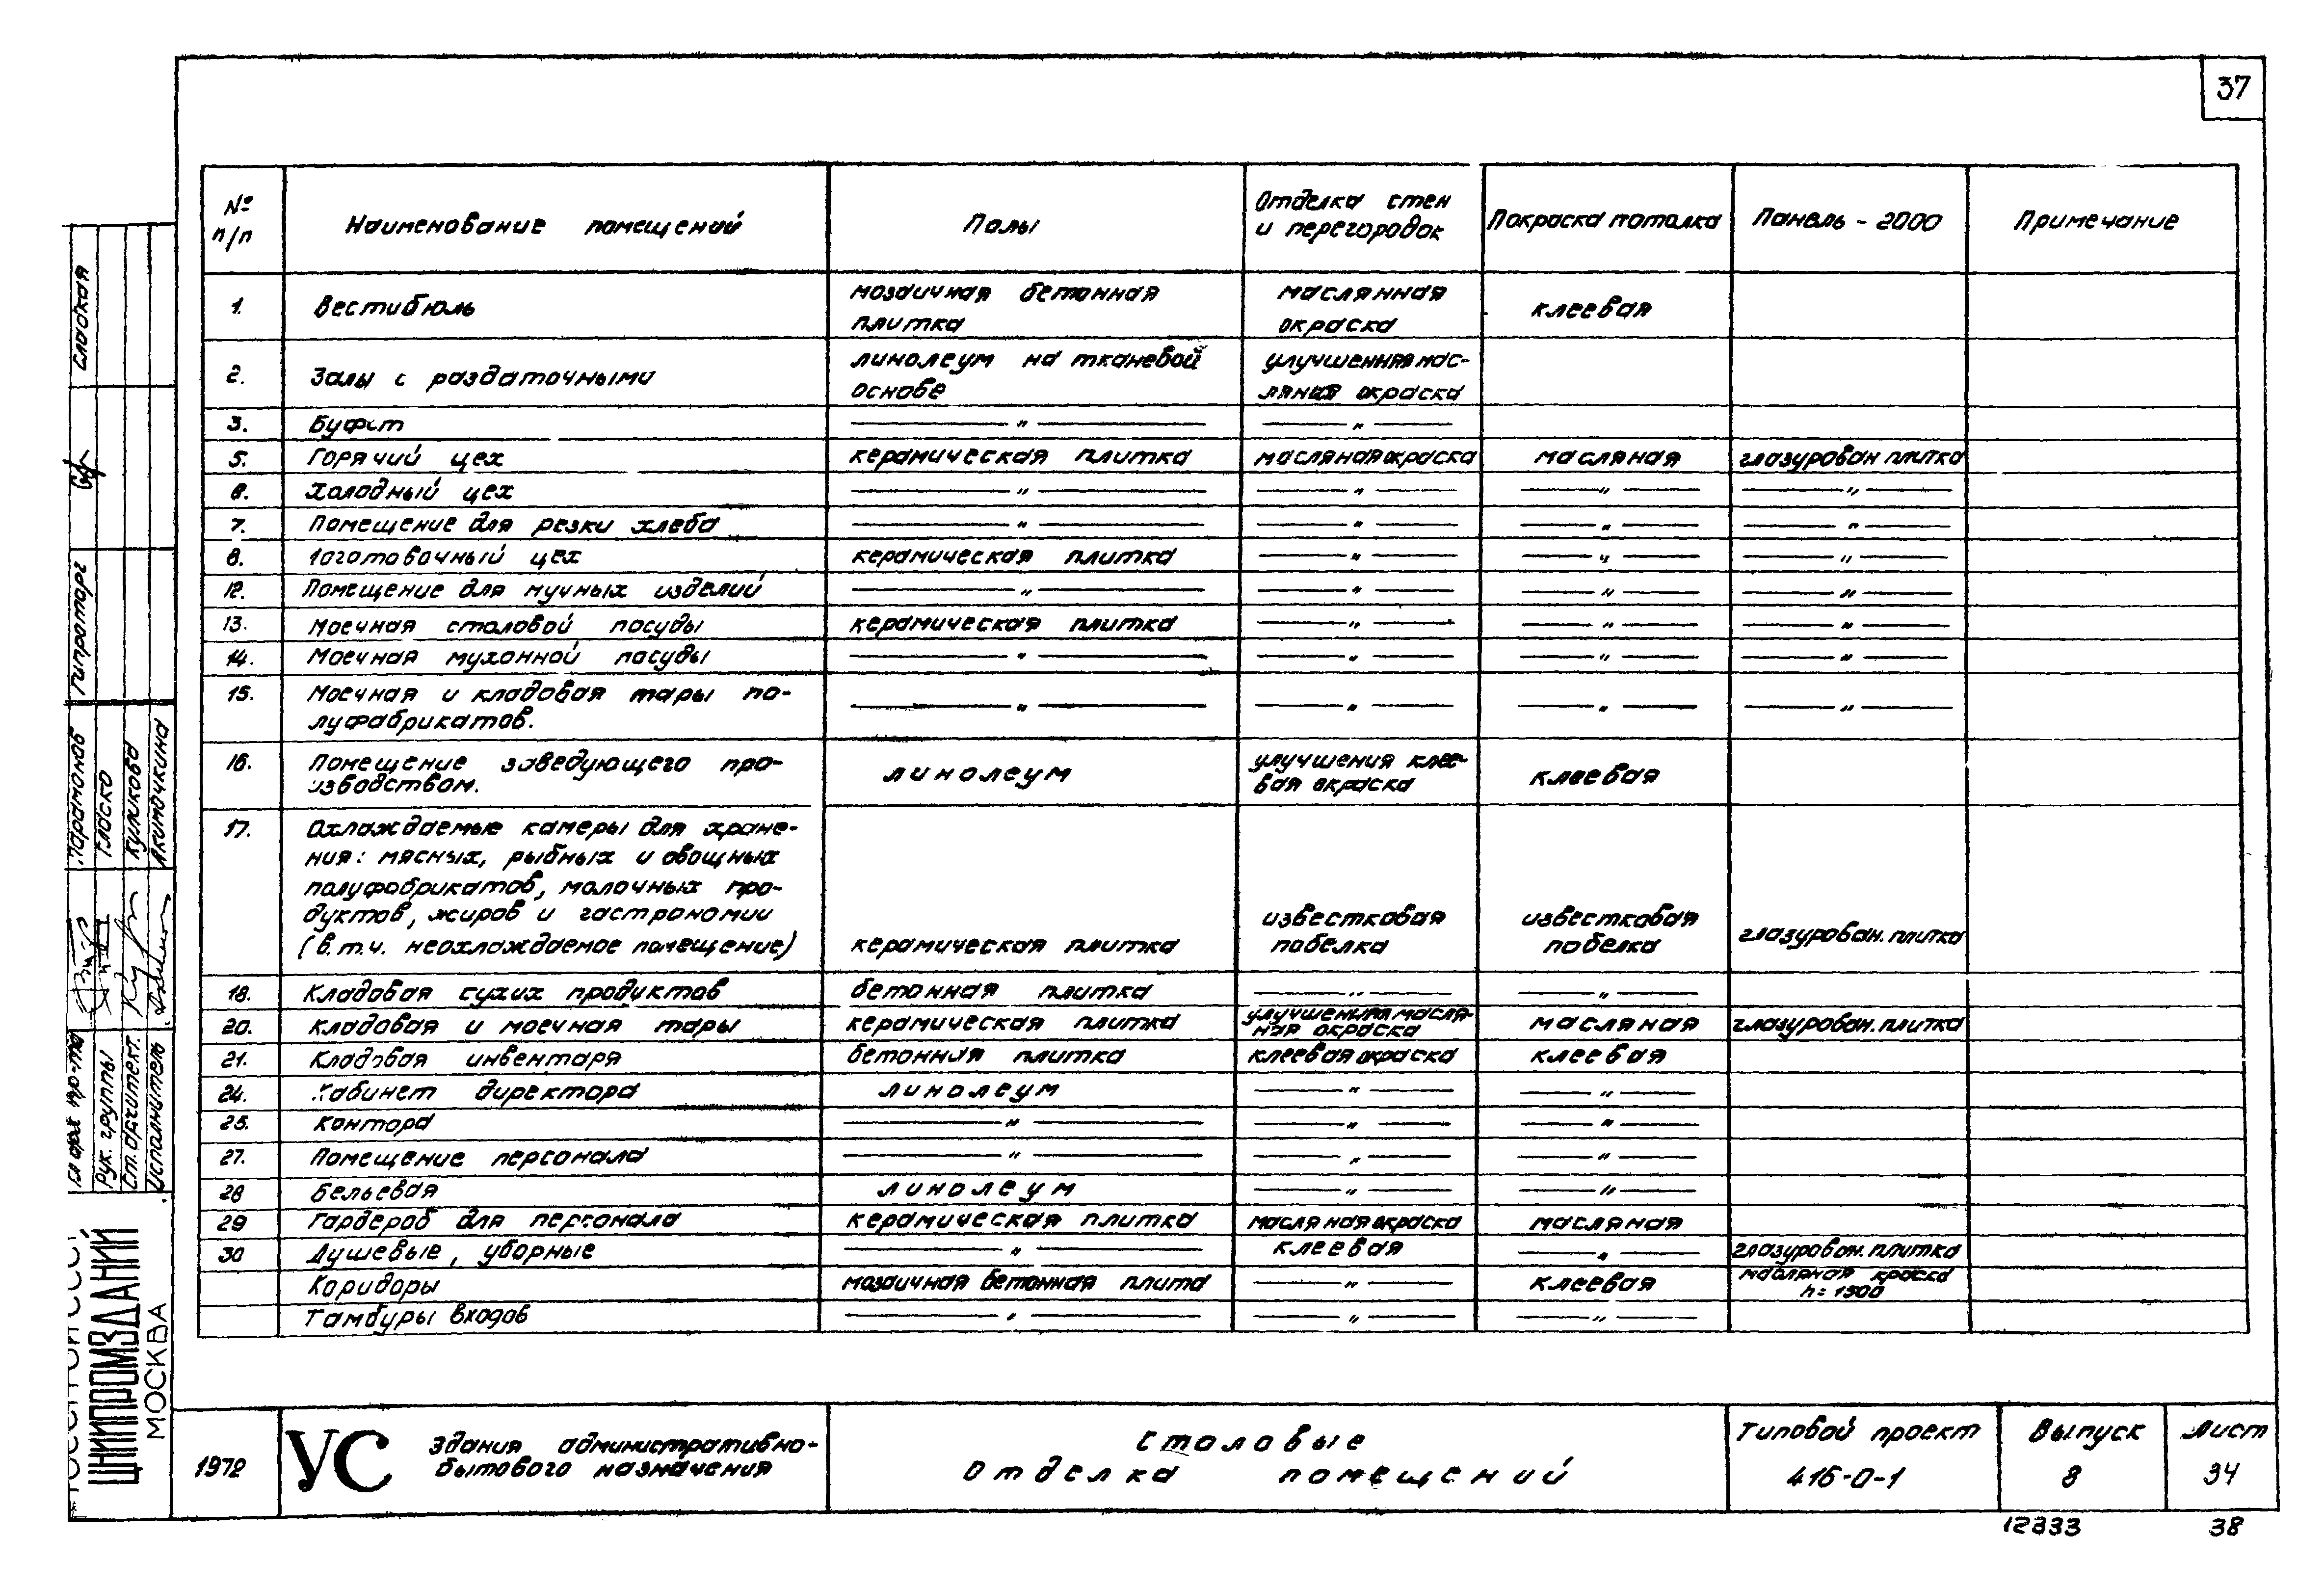 37
№ п/п Наименование помещений Полы Отделка стен и перегородок Покраска потолка Панель - 2000 Примечание
1. Вестибюль мозаичная бетонная плитка маслянная окраска клеевая
2. Залы с раздаточными линолеум на тканевой основе улучшенная мас-ляная окраска
3. Буфет — " — — " —
5. Горячий цех керамическая плитка масляная окраска масляная глазурован плитка
6. Холодный цех — " — — " — — " — — " —
7. Помещение для резки хлеба — " — — " — — " — — " —
8. Заготовочный цех керамическая плитка — " — — " — — " —
12. Помещение для мучных изделий — " — — " — — " — — " —
13. Моечная столовой посуды керамическая плитка — " — — " — — " —
14. Моечная кухонной посуды — " — — " — — " — — " —
15. Моечная и кладовая тары по-
луфабрикатов. — " — — " — — " — — " —
16. Помещение заведующего про-
изводством. линолеум улучшения клее-вая окраска клеевая
17. Охлаждаемые камеры для хране-
ния: мясных, рыбных и овощных
полуфабрикатов, молочных про-
дуктов, жиров и гастрономии
(в.т.ч. неохлаждаемое помещение) керамическая плитка известковая побелка известковая побелка глазурован. плитка
18. Кладовая сухих продуктов бетонная плитка — " — — " —
20. Кладовая и моечная тары керамическая плитка улучшенная масля-ная окраска масляная глазурован. плитка
21. Кладовая инвентаря бетонная плитка клеевая окраска клеевая
24. Кабинет директора линолеум — " — — " —
25. Контора — " — — " — — " —
27. Помещение персонала — " — — " — — " —
28 Бельевая линолеум — " — — " —
29 Гардероб для персонала керамическая плитка масляная окраска масляная
30 Душевые, уборные — " — клеевая — " — глазурован. плитка
Коридоры мозаичная бетонная плита — " — клеевая масляная краска h= 1500
Тамбуры входов — " — — " — — " —
1972 УС Здания административно-
бытового назначения
Столовые
Отделка помещений
Типовой проект
416-0-1
Выпуск
8
Лист
34
12333 38
Сладкая
Гипроторг
Парамонов
Гласко
Куликова
Акимочкина
Рук. группы
Ст. архитект.
Исполнитель
ЦНИИПРОМЗДАНИЙ
МОСКВА